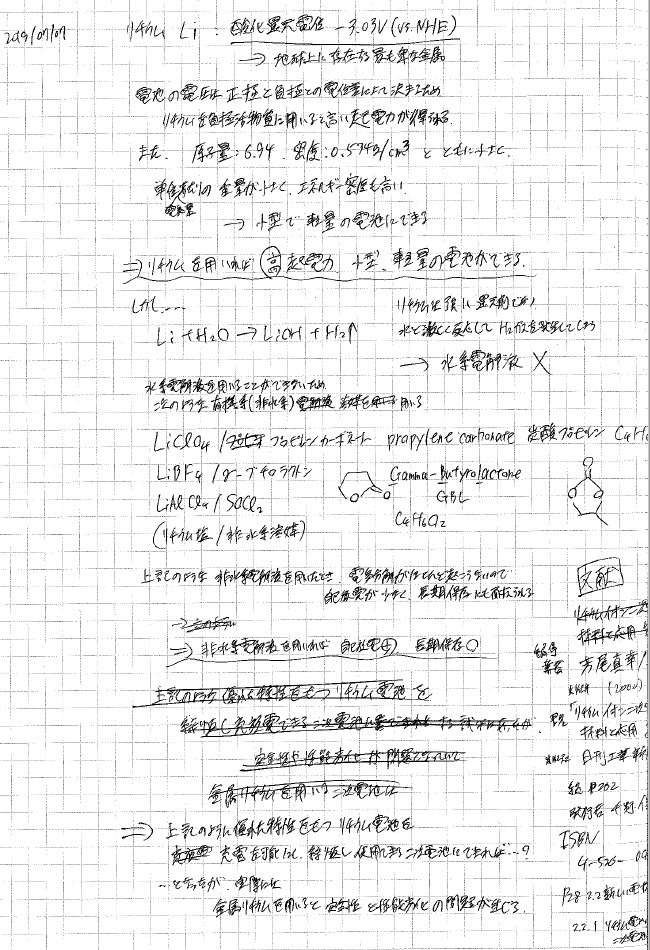 2019/07/07
リチウム Li : 酸化還元電位 -3.03V (vs. NHE)
→ 地球上に存在する最も卑な金属
電池の電圧は 正極と負極との電位差によって決まるため
リチウムを負極活物質に用いると高い起電力が得られる.
また. 原子量:6.94 密度:0.534g/cm³ と ともに小さく.
単位 電気量 あたりの 重量が小さく, エネルギー密度も高い
→ 小型で 軽量の電池にできる
⇒ リチウムを用いれば 高 起電力 小型, 軽量の電池ができる.
しかし....
Li + H₂O → LiOH + H₂↑
リチウムは強い還元剤であり
水と激しく反応して H₂ガスを発生してしまう
→ 水系電解液 ×
水系電解液を用いることができないため
次のような 有機系(非水系) 電解液 を用いる
LiClO₄ / プロピレンカーボネート propylene carbonate 炭酸プロピレン C₄H₆
LiBF₄ / γ-ブチロラクトン Gamma-Butyrolactone
GBL
C₄H₆O₂
LiAlCl₄ / SOCl₂
(リチウム塩 / 非水系溶媒)
上記のような 非水系電解液を用いたとき 電気分解がほとんど起こらないので
自己放電が少なく, 長期保存にも耐えうる
⇒ 非水系電解液を用いれば 自己放電 小 長期保存○
上記のような 優れた特性をもつ リチウム電池を
繰り返し充放電できる 二次電池に
金属リチウムを用いる二次電池は
⇒ 上記のように優れた特性をもつ リチウム電池を
充電を可能にし, 繰り返し使用できる 二次電池にできれば…?
…となったが 実際には
金属リチウムを用いると 安全性 と性能劣化の問題が生じる.
文献
リチウムイオン二次
材料と応用
芳尾真幸/
(2000)
「リチウムイオン二次
材料と応用
日刊工業新
ISBN
4-526-
P28 2.2 新しい電
2.2.1 リチウム電